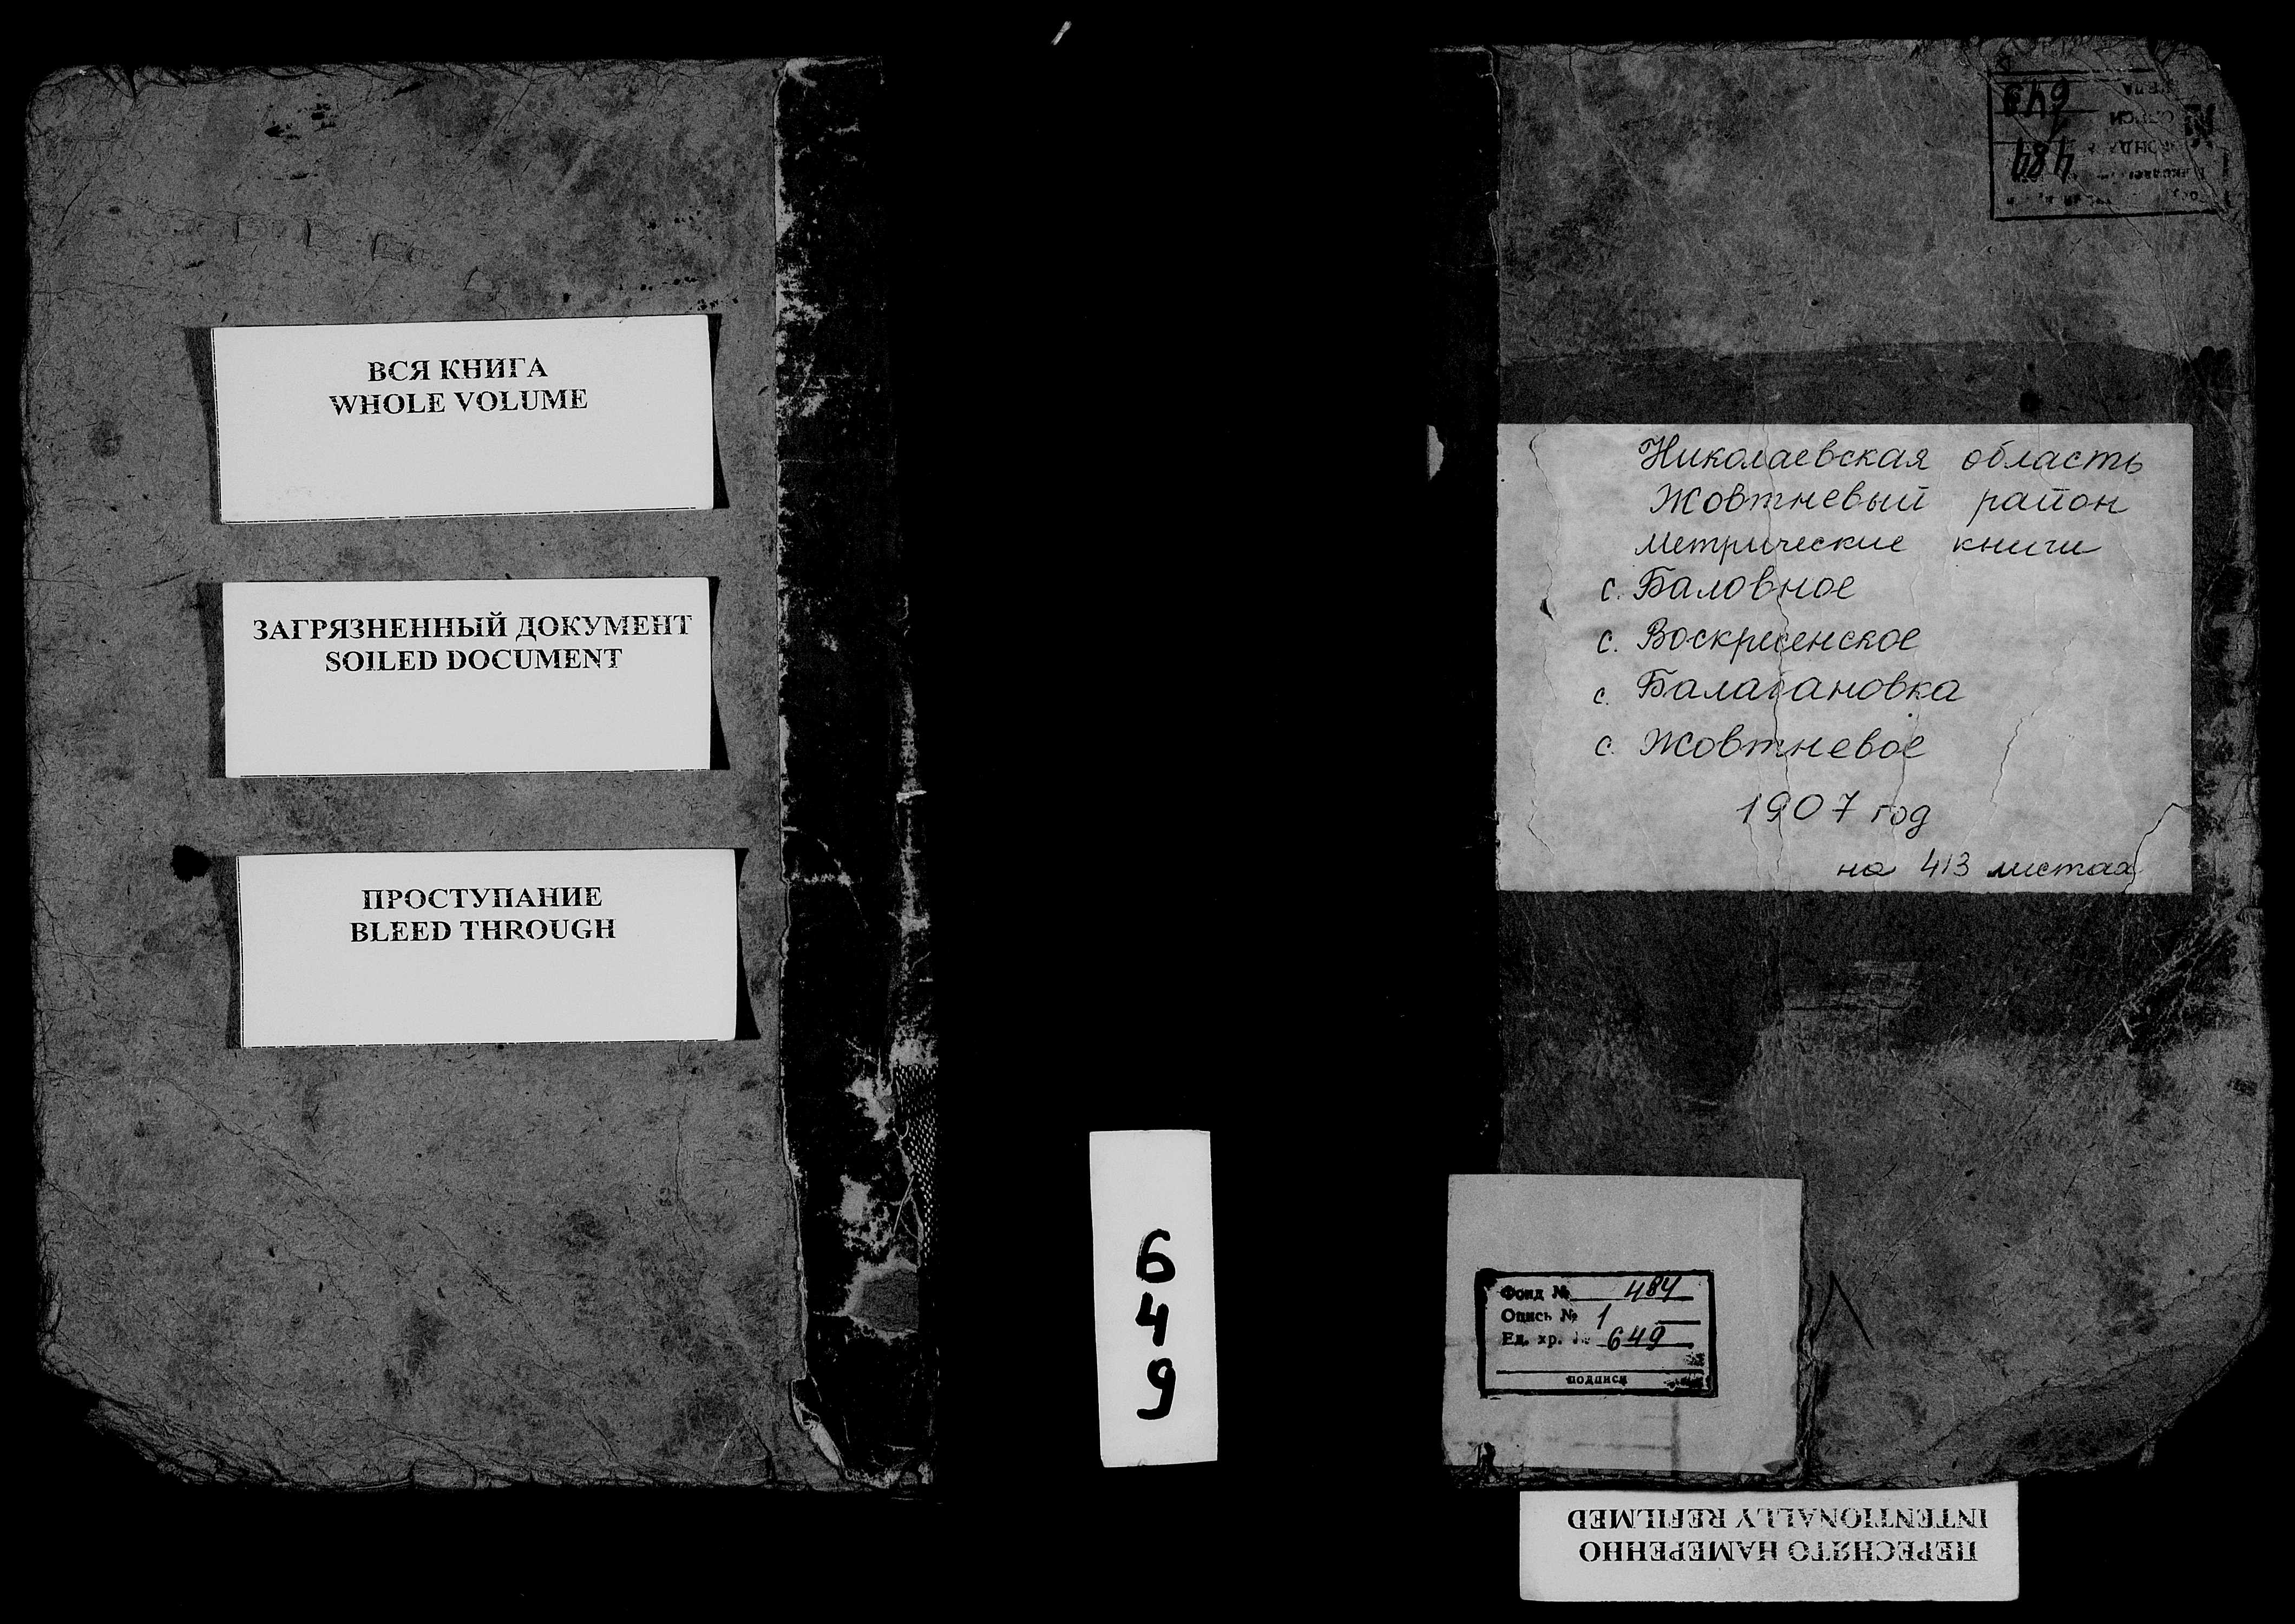 ВСЯ КНИГА
WHOLE VOLUME
ЗАГРЯЗНЕННЫЙ ДОКУМЕНТ
SOILED DOCUMENT
ПРОСТУПАНИЕ
BLEED THROUGH
649
Николаевская область
Жовтневый район
Метрические книги
с. Баловное
с. Воскресенское
с. Балабановка
с. Жовтневое
1907 год
на 413 листах
Фонд № 484
Опись № 1
Ед. хр. № 649
подписи
ПЕРЕСНЯТО НАМЕРЕННО
INTENTIONALLY REFILMED
ФОНДА 484
ОПИСИ 1
ДЕЛА 649